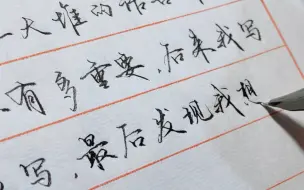 一大堆的
有多重要，后来我写
写，最后发现我想